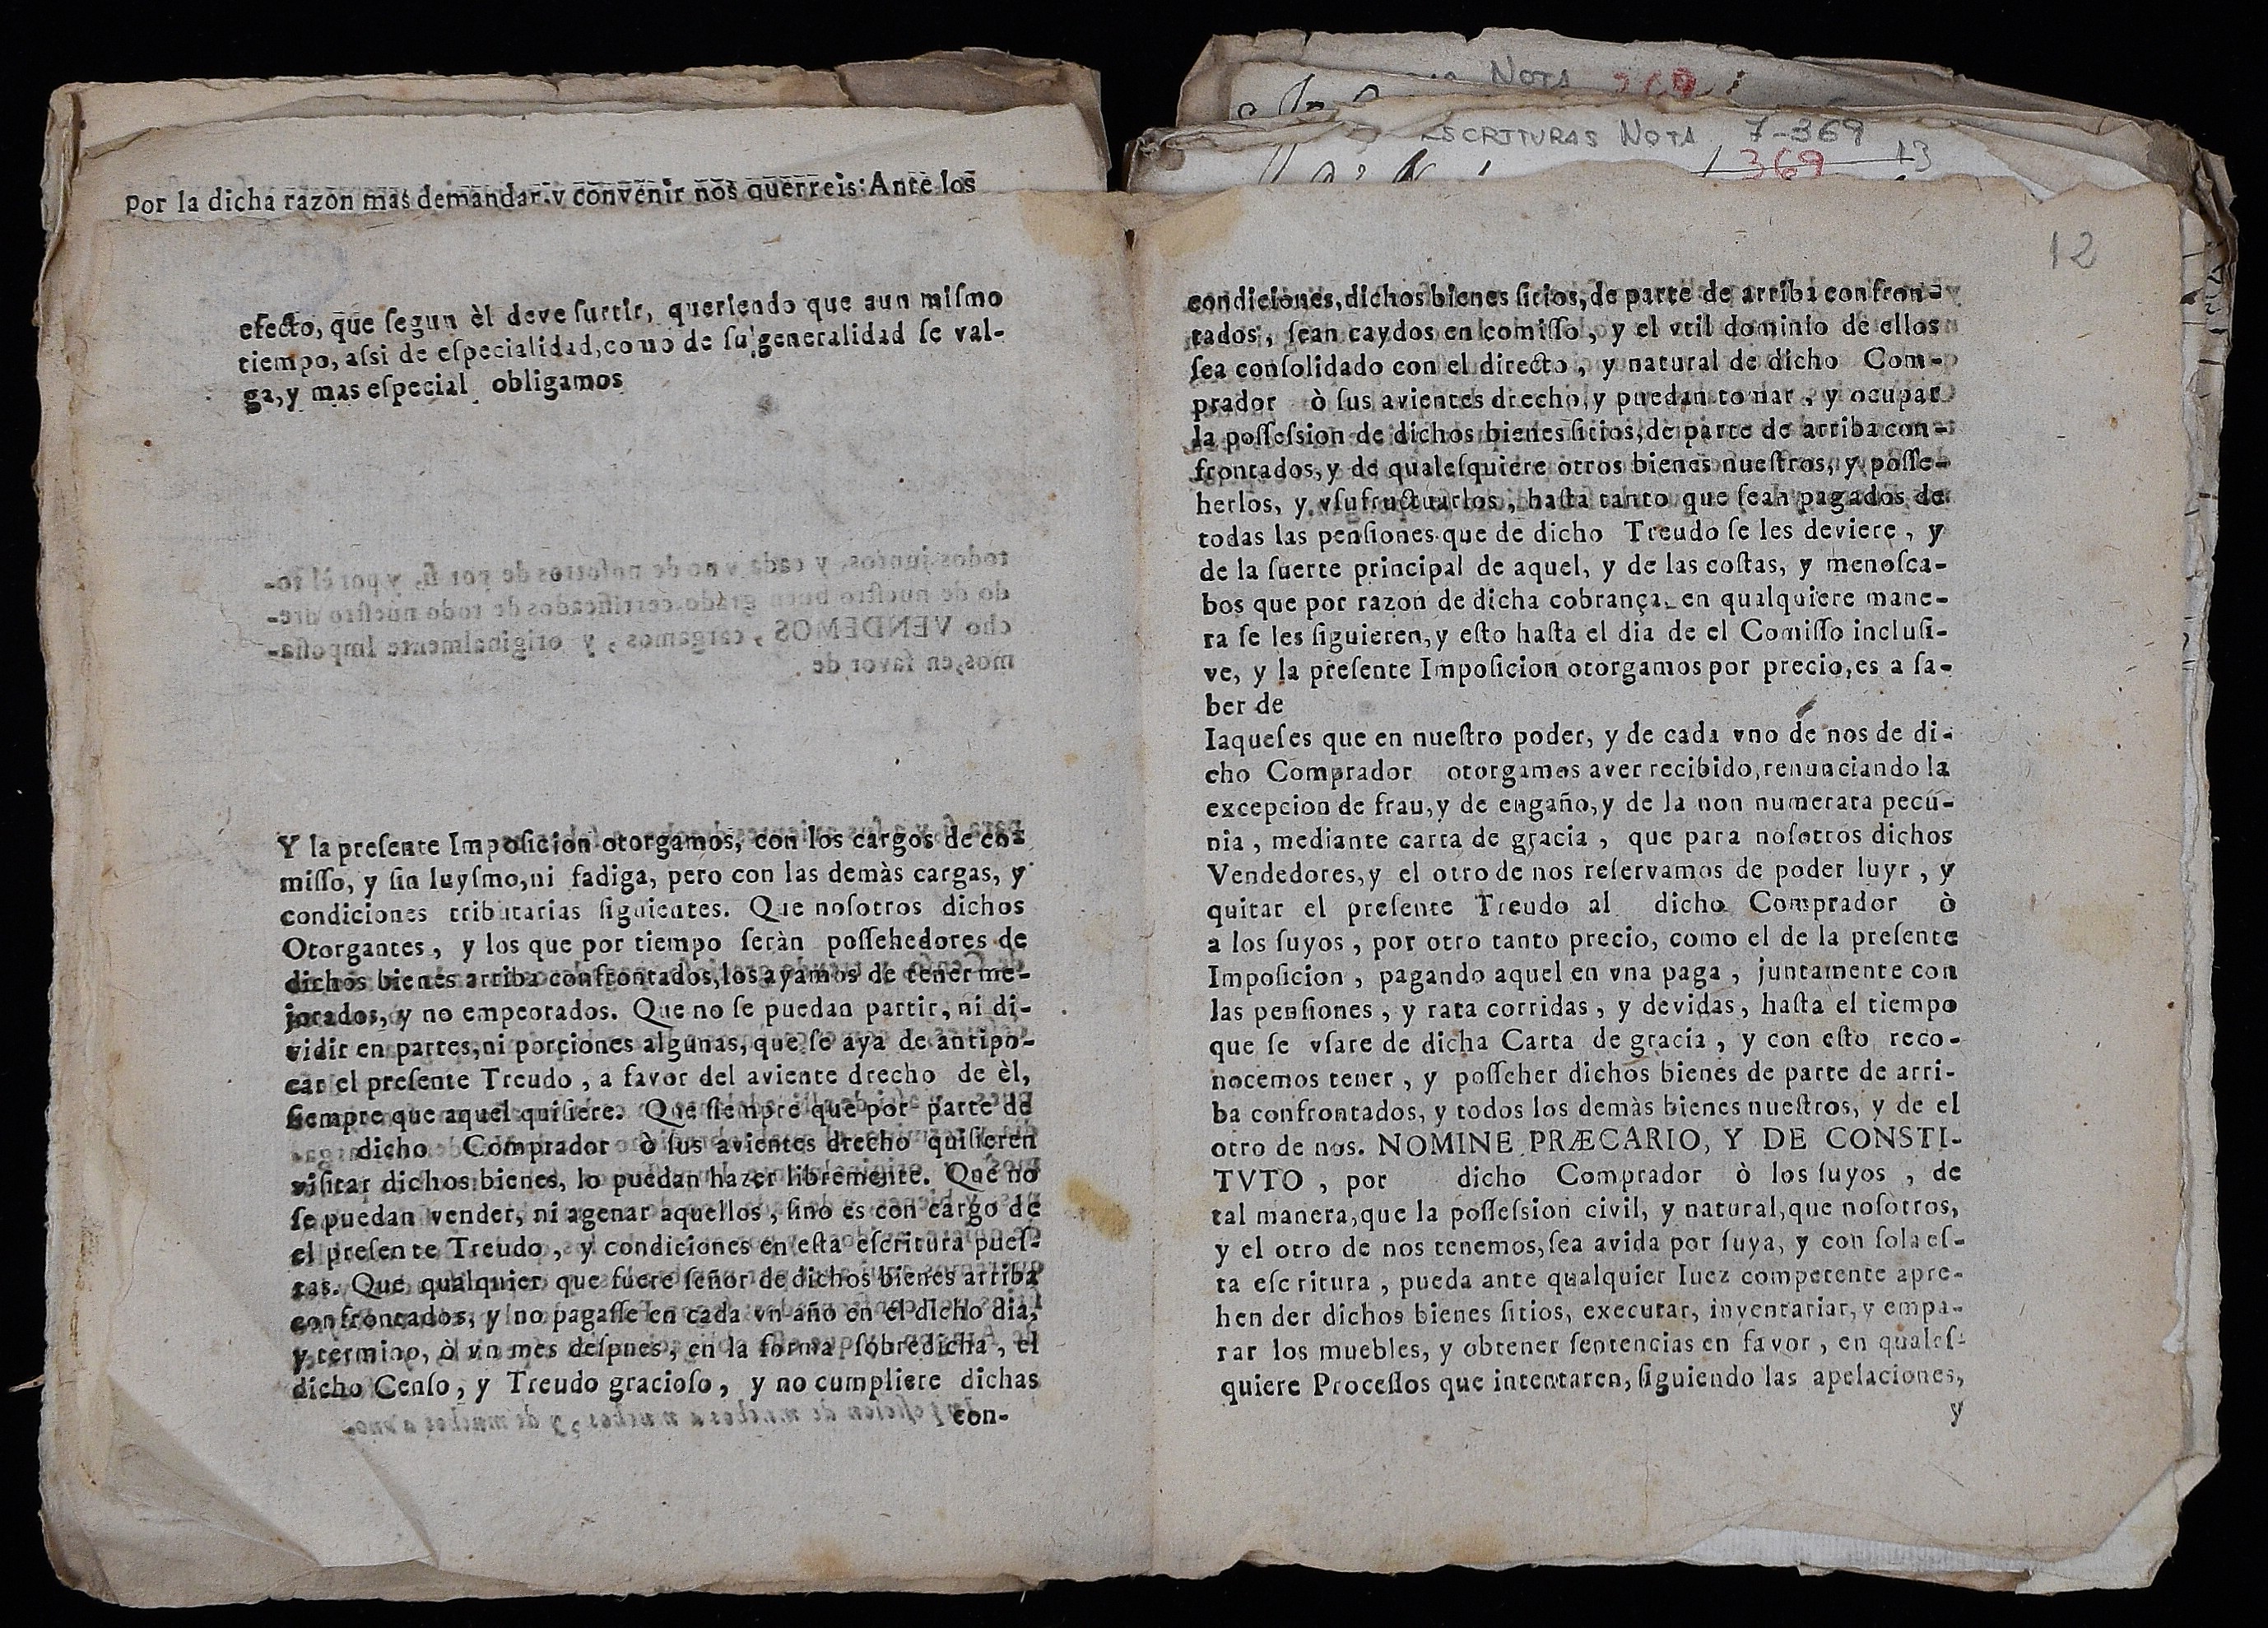 Por la dicha razon mas demandar, y convenir nos querreis: Ante los
efecto, que segun èl deve surtir, queriendo que aun mismo
tiempo, assi de especialidad, como de su generalidad se val-
ga, y mas especial obligamos
todos juntos, y cada vno de nosotros de por si, y por èl to-
do de nuestro buen grado, certificados de todo nuestro dre-
cho VENDEMOS, cargamos, y originalmente Imposia-
mos, en favor de
Y la presente Imposicion otorgamos, con los cargos de co-
misso, y sin luysmo, ni fadiga, pero con las demàs cargas, y
condiciones tributarias siguientes. Que nosotros dichos
Otorgantes, y los que por tiempo seràn possehedores de
dichos bienes arriba confrontados, los ayamos de tener me-
jorados, y no empeorados. Que no se puedan partir, ni di-
vidir en partes, ni porciones algunas, que se aya de antipo-
car el presente Treudo, a favor del aviente drecho de èl,
siempre que aquel quisiere. Que siempre que por parte de
dicho Comprador ò sus avientes drecho quisieren
visitar dichos bienes, lo puedan hazer libremente. Que no
se puedan vender, ni agenar aquellos, sino es con cargo de
el presente Treudo, y condiciones en esta escritura pues-
tas. Que qualquier que fuere señor de dichos bienes arriba
confrontados, y no pagasse en cada vn año en el dicho dia,
y termino, ò vn mes despues, en la forma sobredicha, el
dicho Censo, y Treudo gracioso, y no cumpliere dichas
con-
NOTA
ESCRITURAS NOTA 7-369
369 13
12
condiciones, dichos bienes sitios, de parte de arriba confron-
tados, sean caydos en comisso, y el vtil dominio de ellos
sea consolidado con el directo, y natural de dicho Com-
prador ò sus avientes drecho, y puedan tomar, y ocupar
la possession de dichos bienes sitios, de parte de arriba con-
frontados, y de qualesquiere otros bienes nuestros, y posse-
herlos, y vsufructuarlos, hasta tanto que sean pagados de
todas las pensiones que de dicho Treudo se les deviere, y
de la suerte principal de aquel, y de las costas, y menosca-
bos que por razon de dicha cobrança, en qualquiere mane-
ra se les siguieren, y esto hasta el dia de el Comisso inclusi-
ve, y la presente Imposicion otorgamos por precio, es a sa-
ber de
Iaqueses que en nuestro poder, y de cada vno de nos de di-
cho Comprador otorgamos aver recibido, renunciando la
excepcion de frau, y de engaño, y de la non numerata pecu-
nia, mediante carta de gracia, que para nosotros dichos
Vendedores, y el otro de nos reservamos de poder luyr, y
quitar el presente Treudo al dicho Comprador ò
a los suyos, por otro tanto precio, como el de la presente
Imposicion, pagando aquel en vna paga, juntamente con
las pensiones, y rata corridas, y devidas, hasta el tiempo
que se vsare de dicha Carta de gracia, y con esto reco-
nocemos tener, y posseher dichos bienes de parte de arri-
ba confrontados, y todos los demàs bienes nuestros, y de el
otro de nos. NOMINE PRÆCARIO, Y DE CONSTI-
TVTO, por dicho Comprador ò los suyos, de
tal manera, que la possession civil, y natural, que nosotros,
y el otro de nos tenemos, sea avida por suya, y con sola es-
ta escritura, pueda ante qualquier Iuez competente apre-
hen der dichos bienes sitios, executar, inventariar, y empa-
rar los muebles, y obtener sentencias en favor, en quales-
quiere Processos que intentaren, siguiendo las apelaciones,
y